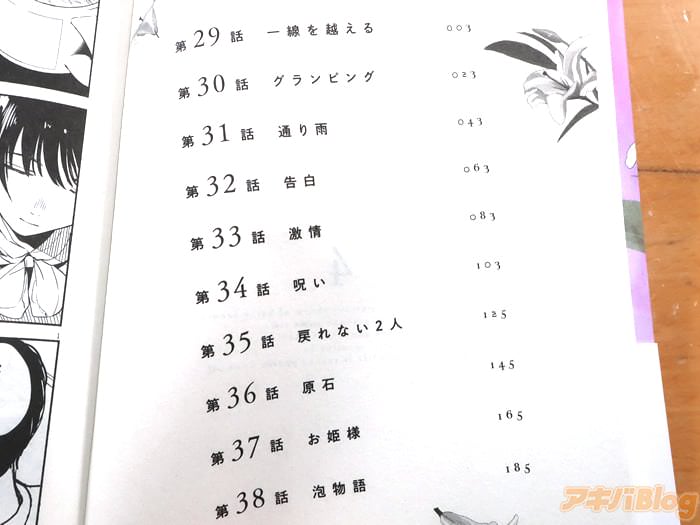 第29話 一線を越える 003
第30話 グランピング 023
第31話 通り雨 043
第32話 告白 063
第33話 激情 083
第34話 呪い 103
第35話 戻れない2人 125
第36話 原石 145
第37話 お姫様 165
第38話 泡物語 185
アキバBlog